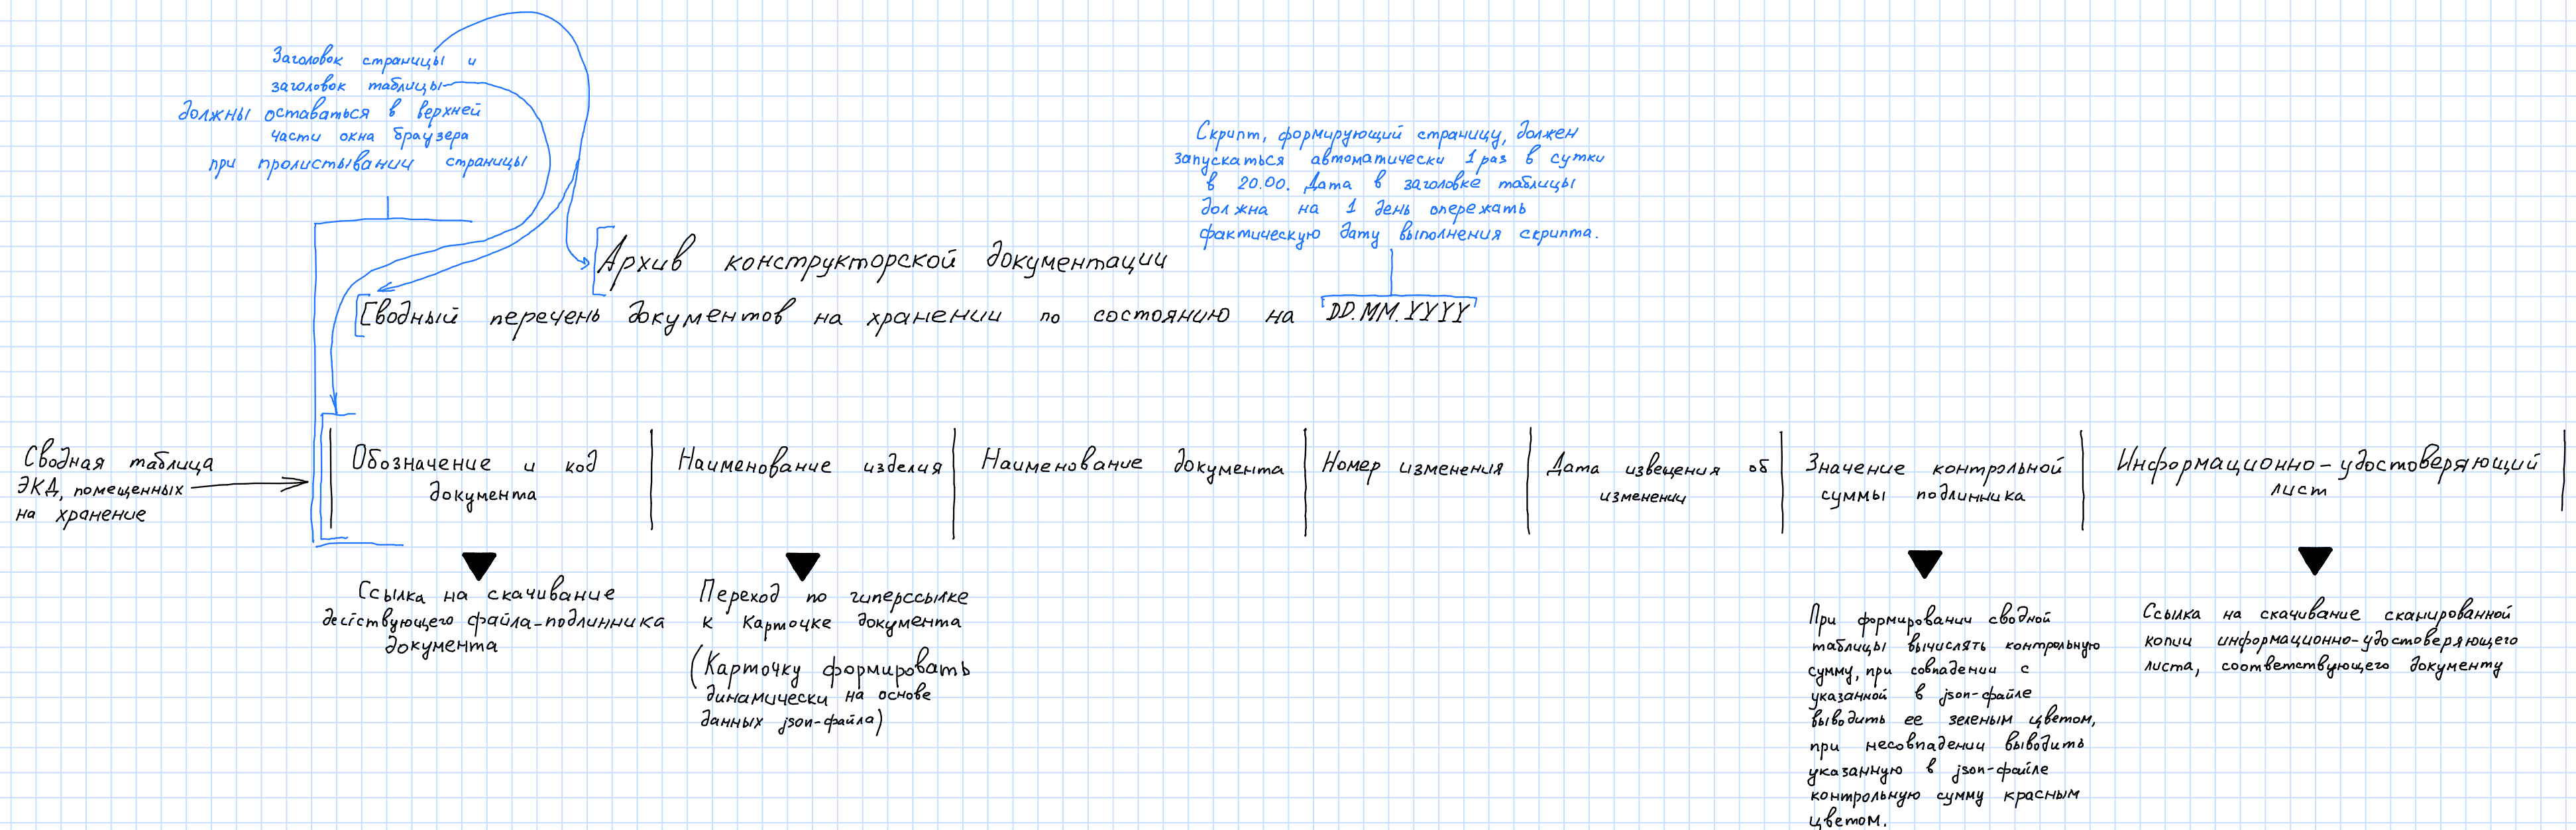 Заголовок страницы и
заголовок таблицы
должны оставаться в верхней
части окна браузера
при пролистывании страницы
Скрипт, формирующий страницу, должен
запускаться автоматически 1 раз в сутки
в 20.00. Дата в заголовке таблицы
должна на 1 день опережать
фактическую дату выполнения скрипта.
Архив конструкторской документации
Сводный перечень документов на хранении по состоянию на DD.MM.YYYY
Сводная таблица
ЭКД, помещенных
на хранение
Обозначение и код
документа
Наименование изделия
Наименование документа
Номер изменения
Дата извещения об
изменении
Значение контрольной
суммы подлинника
Информационно-удостоверяющий
лист
Ссылка на скачивание
действующего файла-подлинника
документа
Переход по гиперссылке
к Карточке документа
(Карточку формировать
динамически на основе
данных json-файла)
При формировании сводной
таблицы вычислять контрольную
сумму, при совпадении с
указанной в json-файле
выводить ее зеленым цветом,
при несовпадении выводить
указанную в json-файле
контрольную сумму красным
цветом.
Ссылка на скачивание сканированной
копии информационно-удостоверяющего
листа, соответствующего документу